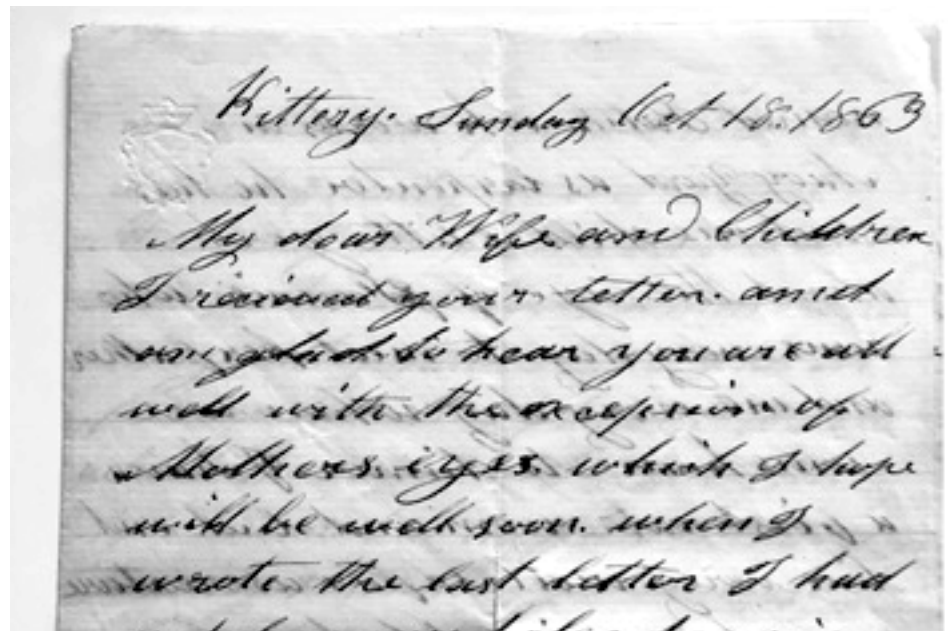 Kittery. Sunday Oct 18. 1863
My dear Wife and Children
I recieved your letter. and
am glad to hear you are all
well with the excepsion of
Mothers iyes. which I hope
will be well soon. when I
wrote the last letter I had